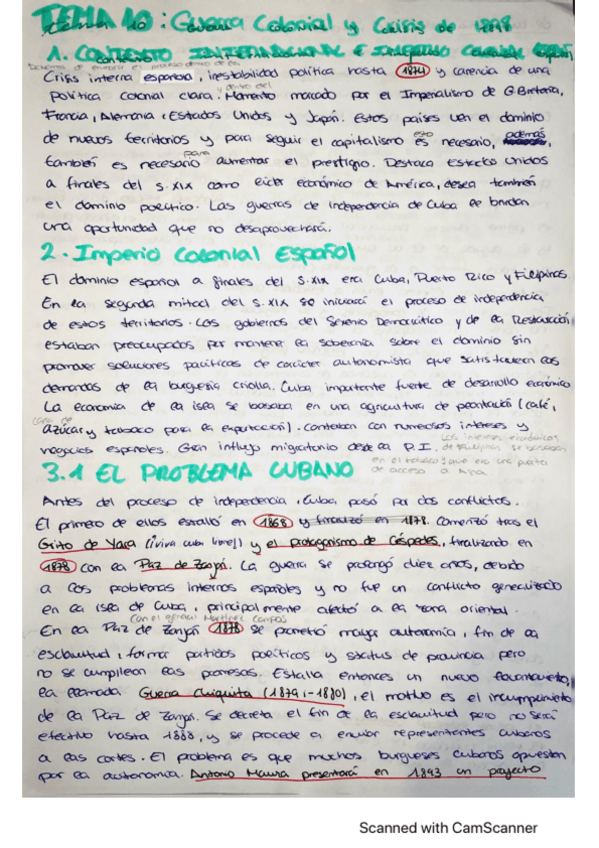 TEMA 10: Guerra Colonial y Crisis de 1898
1. CONTEXTO INTERNACIONAL E
Crisis interna española, inestabilidad política hasta 1874 y carencia de una
política colonial clara. Momento marcado por el Imperialismo de G.Bretaña,
Francia, Alemania, Estados Unidos y Japón. Estos países ven el dominio
de nuevos territorios y para seguir el capitalismo esto es necesario, además
también es necesario para aumentar el prestigio. Destaca Estados Unidos
a finales del s.XIX como líder económico de América, desea también
el dominio político. Las guerras de independencia de Cuba le brindan
una oportunidad que no desaprovechará.
2. Imperio Colonial Español
El dominio español a finales del s.XIX era Cuba, Puerto Rico y Filipinas.
En la segunda mitad del s.XIX se iniciará el proceso de independencia
de estos territorios. Los gobiernos del Sexenio Democrático y de la Restauración
estaban preocupados por mantener la soberanía sobre el dominio sin
promover soluciones pacíficas de carácter autonomista que satisficieran las
demandas de la burguesía criolla. Cuba importante fuerte de desarrollo económico
La economía de la isla se basaba en una agricultura de plantación (café,
azúcar y tabaco para la exportación). Contaban con numerosos intereses y
negocios españoles. Gran influjo migratorio desde la P.I. Los intereses económicos
de Filipinas se basaban
en el tabaco y que era una puerta
de acceso a Asia
3.1 EL PROBLEMA CUBANO
Antes del proceso de independencia, Cuba pasó por dos conflictos.
El primero de ellos estalló en 1868 y finalizó en 1878. Comenzó tras el
Grito de Yara (¡viva cuba libre!) y el protagonismo de Céspedes, finalizando en
1878 con la Paz de Zanjón. La guerra se prolongó diez años, debido
a los problemas internos españoles y no fue un conflicto generalizado
en la isla de Cuba, principalmente afectó a la zona oriental.
con el general Martínez Campos
En la Paz de Zanjón 1878 se prometió mayor autonomía, fin de la
esclavitud, formar partidos políticos y status de provincia pero
no se cumplieron las promesas. Estalla entonces un nuevo levantamiento,
la llamada Guerra Chiquita (1879-1880), el motivo es el incumplimiento
de la Paz de Zanjón. Se decreta el fin de la esclavitud pero no será
efectivo hasta 1888, y se procede a enviar representantes cubanos
a las cortes. El problema es que muchos burgueses cubanos apuestan
por la autonomía. Antonio Maura presentará en 1893 un proyecto
Scanned with CamScanner